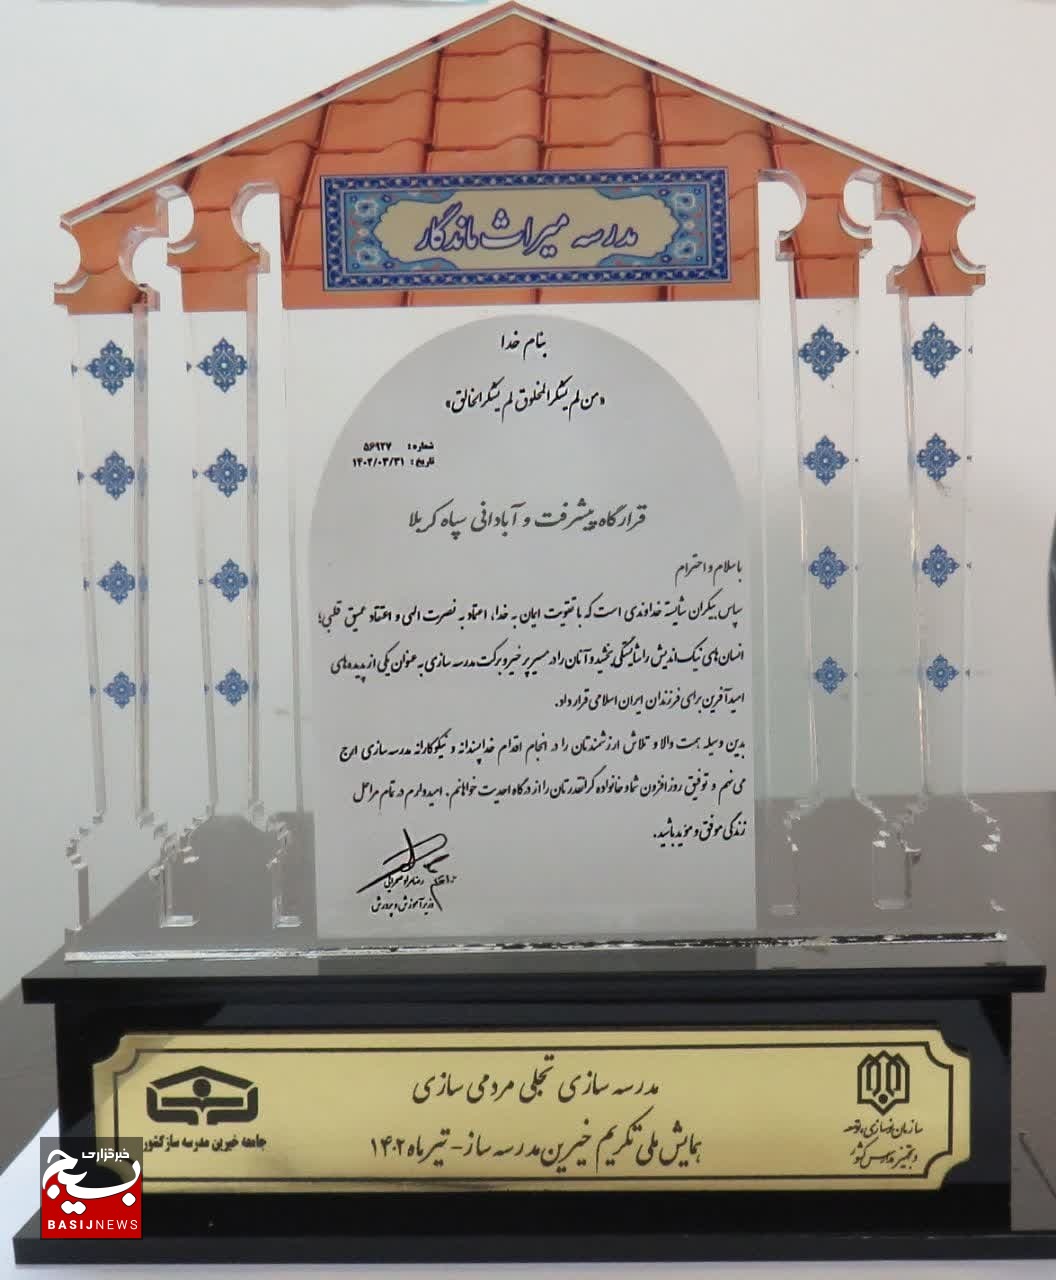 مدرسه میراث ماندگار
بنام خدا
«من لم یشکر المخلوق لم یشکر الخالق»
شماره: ۵۶۹۲۷
تاریخ: ۱۴۰۲/۰۳/۳۱
قرارگاه پیشرفت و آبادانی سپاه کربلا
با سلام و احترام
سپاس بیکران شایسته خداوندی است که با تقویت ایمان به خدا، اعتماد به نصرت الهی و اعتقاد عمیق قلبی؛
انسان های نیک اندیش را شایستگی بخشید و آنان را در مسیر پر خیر و برکت مدرسه سازی به عنوان یکی از پدیده های
امیدآفرین برای فرزندان ایران اسلامی قرار داد.
بدین وسیله همت والا و تلاش ارزشمندتان را در انجام اقدام خداپسندانه و نیکوکارانه مدرسه سازی ارج
می نهم و توفیق روز افزون شما و خانواده گرانقدرتان را از درگاه احدیت خواهانم. امیدوارم در تمام مراحل
زندگی موفق و مؤید باشید.
رضامراد صحرایی
وزیر آموزش و پرورش
مدرسه سازی تجلی مردمی سازی
همایش ملی تکریم خیرین مدرسه ساز - تیر ماه ۱۴۰۲
سازمان نوسازی، توسعه
و تجهیز مدارس کشور
جامعه خیرین مدرسه ساز کشور
خبرگزاری
بسیج
BASIJNEWS